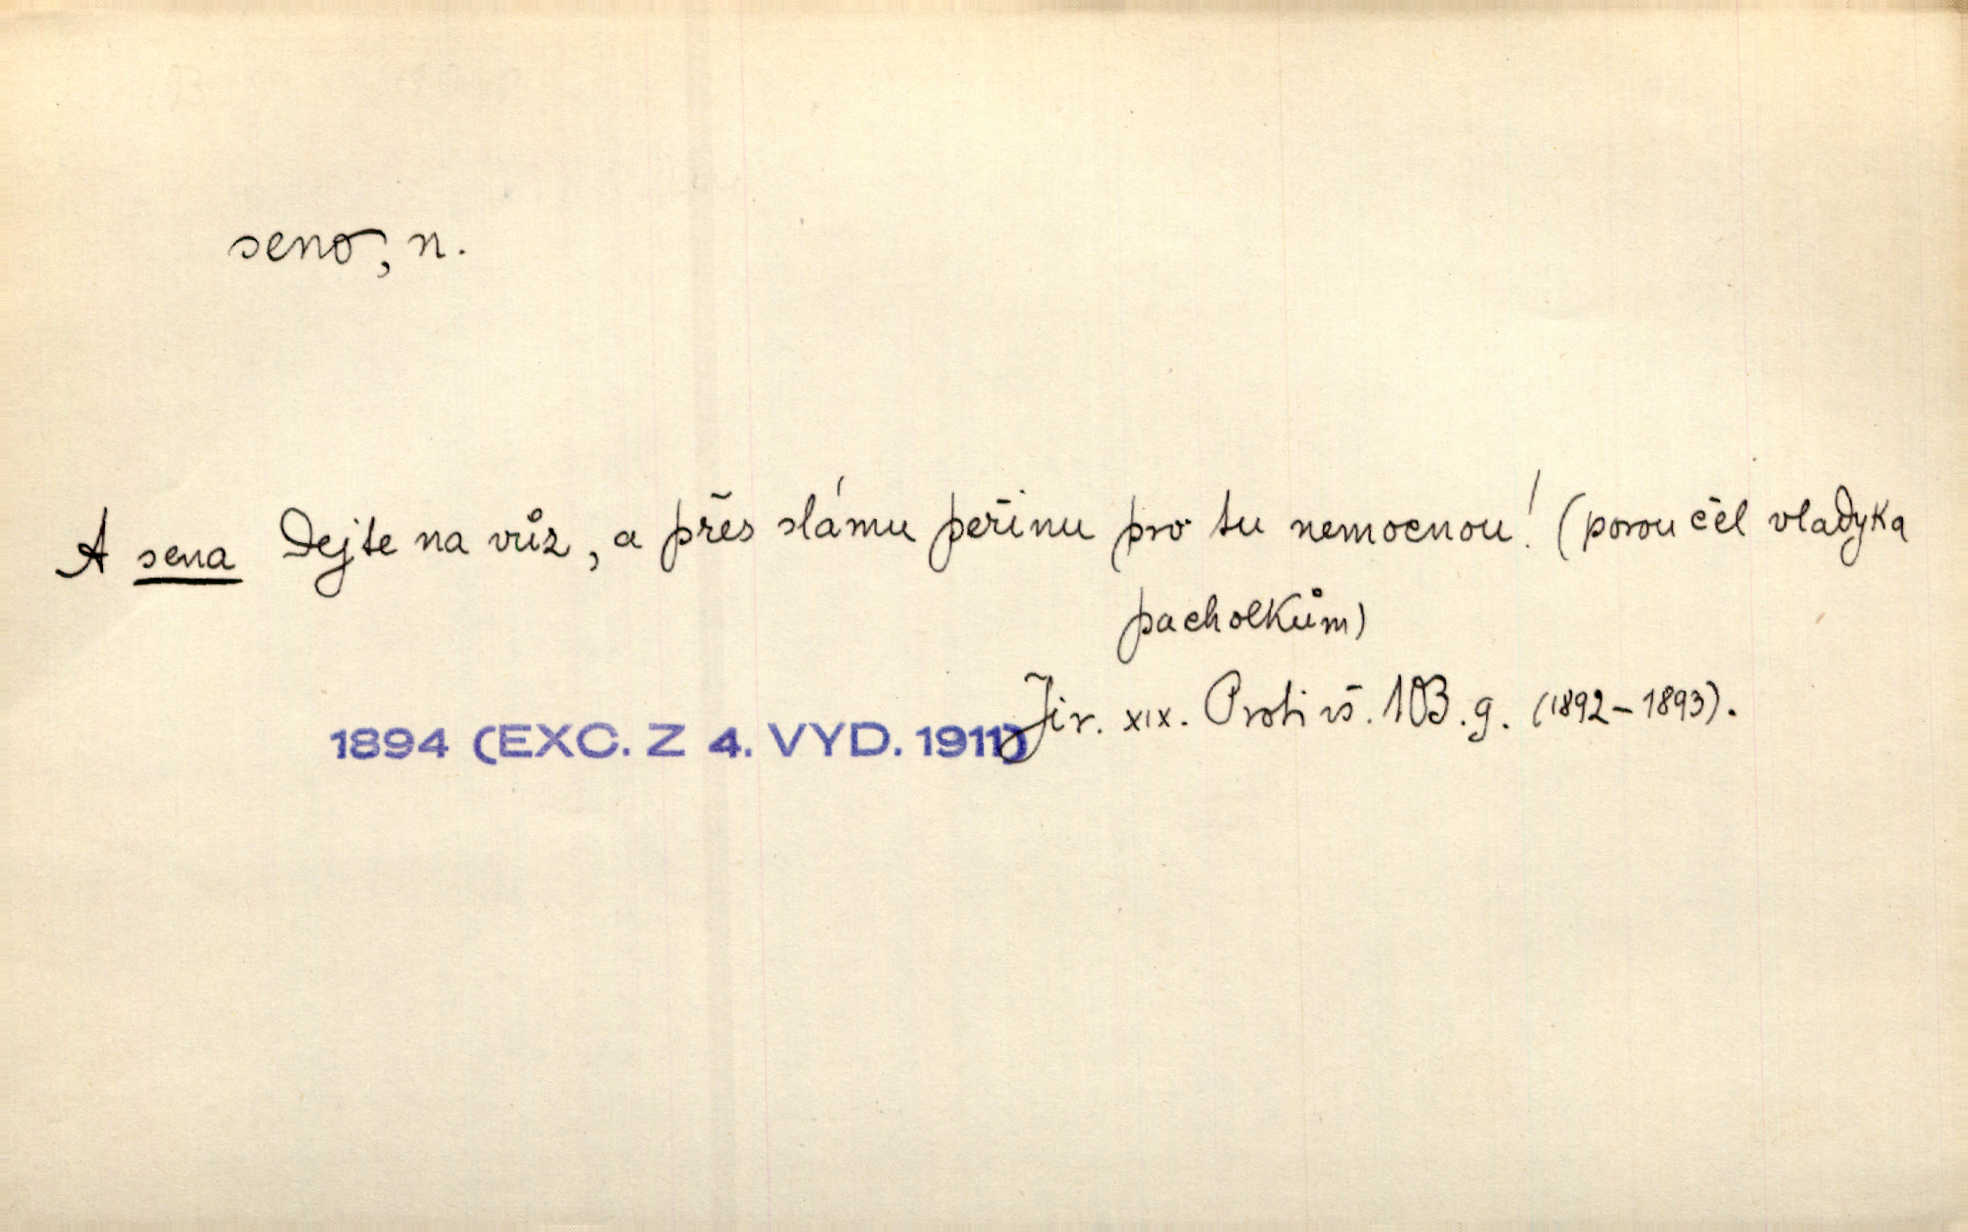 seno, n.
A sena dejte na vůz, a přes slámu peřinu pro tu nemocnou! (poroučel vladyka
pacholkům)
Jir. XIX. Proti vš. 103. g. (1892-1893).
1894 (EXC. Z 4. VYD. 1911)